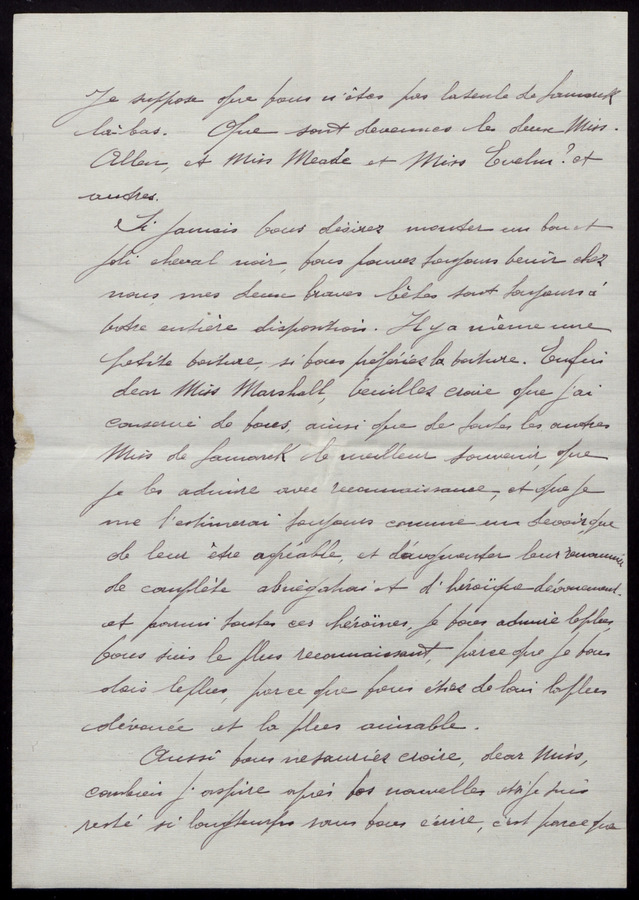 Je suppose que vous n'êtes pas la seule de Lamarck
là-bas. Que sont devennes les deux Miss.
Allen, et Miss Meade et Miss Evelin? et
autres.
Si jamais vous désirez monter un bon et
joli cheval noir, vous pouvez toujours venir chez
nous mes deux braves bêtes sont toujours à
votre entière disposition. Il y a même une
petite voiture, si vous préfériez la voiture. Enfin
dear Miss Marshall, veuillez croire que j'ai
conservé de vous, ainsi que de toutes les autres
Miss de Lamarck le meilleur souvenir, que
je les admire avec reconnaissance, et que je
me l'estimerai toujours comme un devoir, que
de leur être agréable, et d'augmenter leur renommée
de complète abnégation et d'héroïque dévouement.
et parmi toutes ces héroïnes, je vous admire le plus,
vous suis le plus reconnaissant, parce que je vous
dois le plus, parce que vous étiez de loin la plus
dévouée et la plus aimable.
Aussi vous ne sauriez croire, dear Miss,
combien j'aspire après vos nouvelles et si je suis
resté si longtemps sans vous écrire, c'est parce que